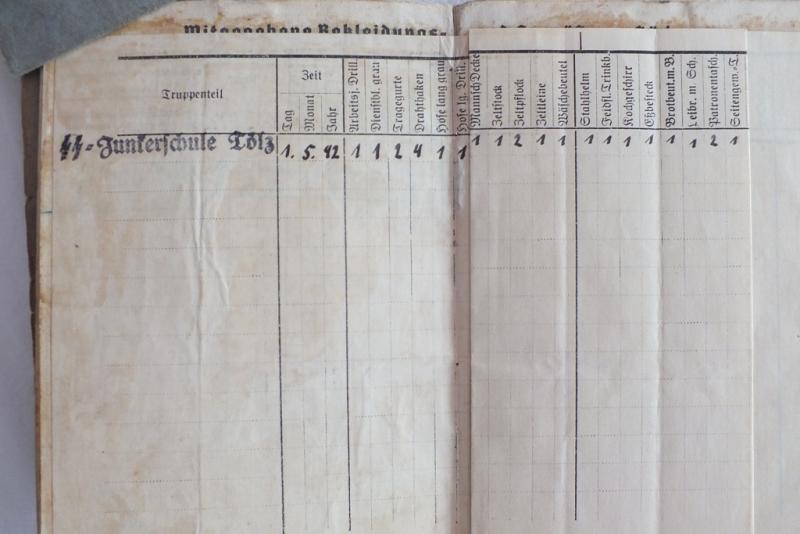 Mitgegebene Bekleidungs-
Truppenteil
Zeit
Tag
Monat
Jahr
Arbeitsj. Drill.
Dienstbl. grau
Tragegurte
Drahthaken
Hose lang grau
Hose lg. Drill.
Mannsch Decke
Zeltstock
Zeltpflock
Zeltleine
Wäschebeutel
Stahlhelm
Feldfl. Trinkb.
Kochgeschirr
Eßbesteck
Brotbeut. m. B.
Leibr. m. Sch.
Patronentasch.
Seitengew.-T.
SS-Junkerschule Tölz 1. 5. 42 1 1 2 4 1 1 1 1 2 1 1 1 1 1 1 1 1 2 1